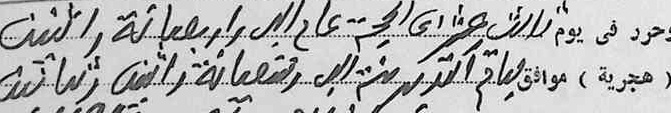 وحرر فى يوم ثالث عشر ذى الحجة عام الف واربعمائة واثنين
( هجرية ) موافق يوم اكتوبر سنة الف وتسعمائة واثنين وثمانين